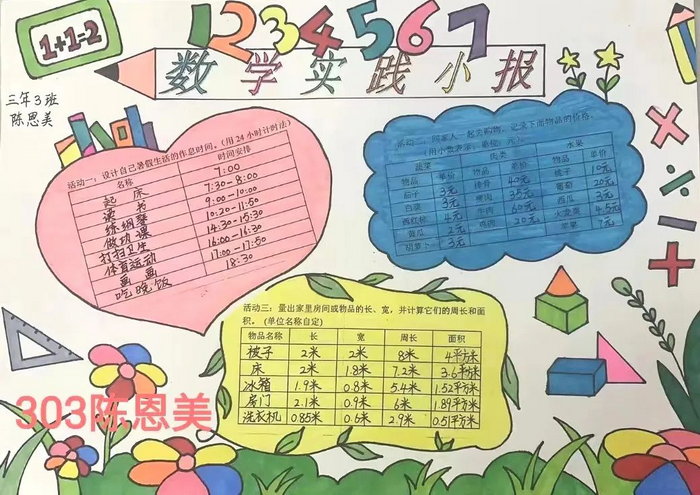 1+1=2
1234567
数学实践小报
三年3班
陈恩美
活动一：设计自己暑假生活的作息时间。（用24小时计时法）
名称 时间安排
起床 7:00
读书 7:30-8:00
练钢琴 9:00-10:00
做功课 10:20-11:50
打扫卫生 14:30-15:30
体育运动 16:00-16:30
画画 17:00-17:50
吃晚饭 18:30
活动二：跟家人一起去购物，记录下商物品的价格。
（用小数表示，单位：元）
蔬菜 肉类 水果
物品 单价 物品 单价 物品 单价
茄子 3元 排骨 40元 桃子 10元
白菜 3元 瘦肉 35元 葡萄 20元
西红柿 4元 牛肉 60元 西瓜 3元
黄瓜 2元 鸡肉 20元 火龙果 4.5元
胡萝卜 3元 苹果 7元
活动三：量出家里房间或物品的长、宽，并计算它们的周长和面
积。（单位名称自定）
物品名称 长 宽 周长 面积
被子 2米 2米 8米 4平方米
床 2米 1.8米 7.2米 3.6平方米
冰箱 1.9米 0.8米 5.4米 1.52平方米
房门 2.1米 0.9米 6米 1.89平方米
洗衣机 0.85米 0.6米 2.9米 0.51平方米
303陈恩美